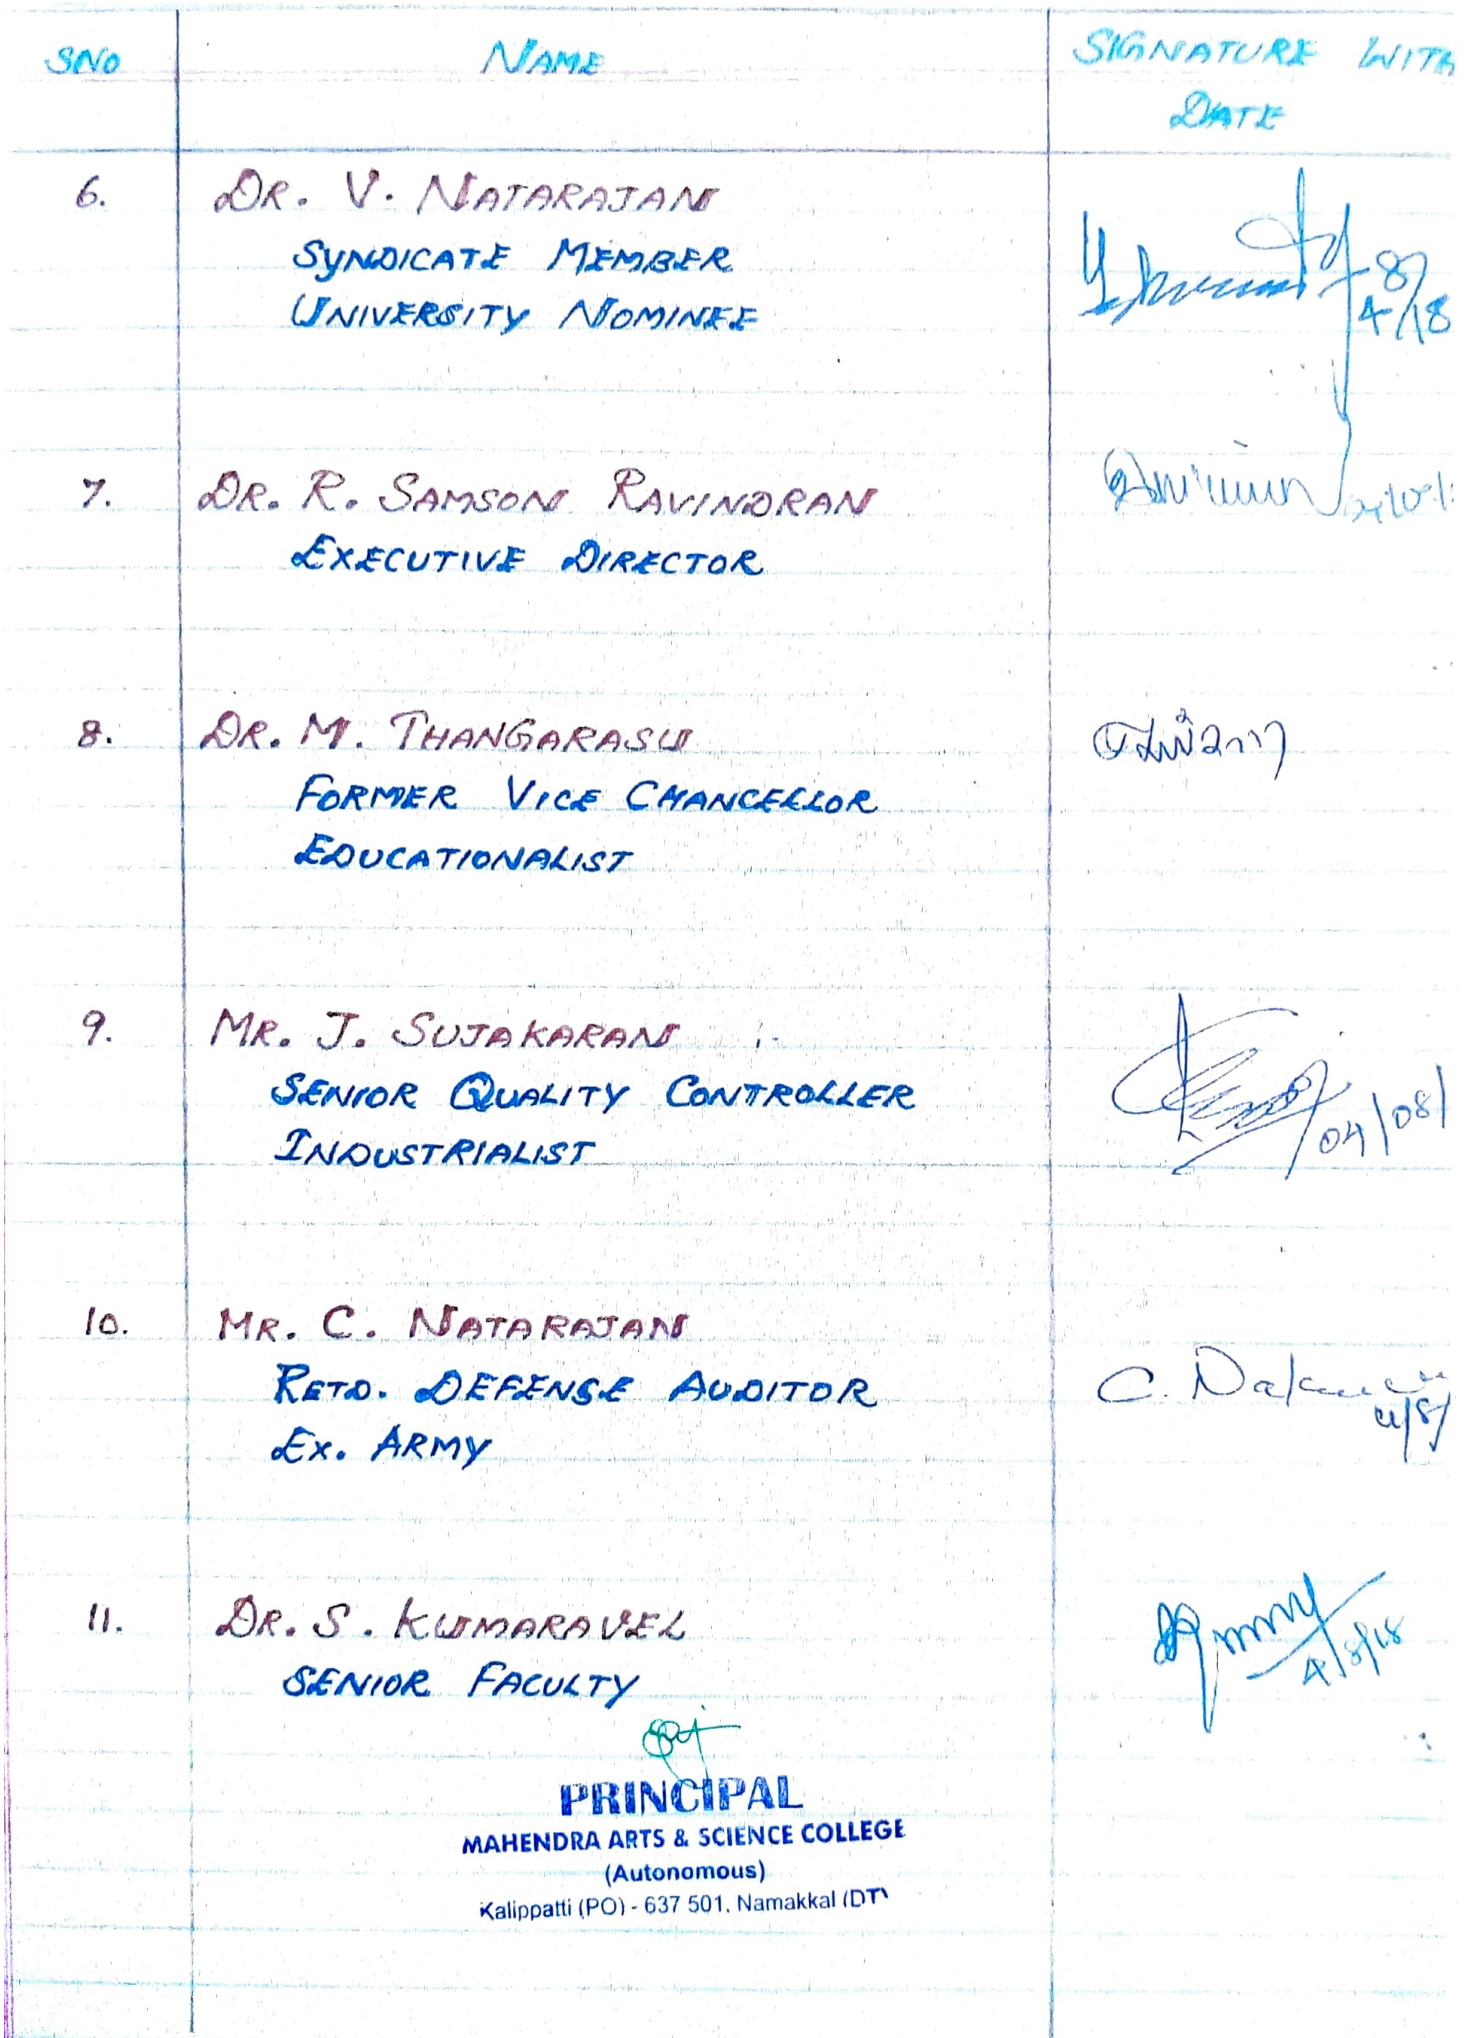 SNO NAME SIGNATURE WITH
DATE
6. DR. V. NATARAJAN
SYNDICATE MEMBER
UNIVERSITY NOMINEE
8/
4/18
7. DR. R. SAMSON RAVINDRAN
EXECUTIVE DIRECTOR
8. DR. M. THANGARASU
FORMER VICE CHANCELLOR
EDUCATIONALIST
9. MR. J. SUJAKARAN
SENIOR QUALITY CONTROLLER
04/08/
INDUSTRIALIST
10. MR. C. NATARAJAN
RETD. DEFENSE AUDITOR C.
4/8/
EX. ARMY
11. DR. S. KUMARAVEL
SENIOR FACULTY 4/8/18
PRINCIPAL
MAHENDRA ARTS & SCIENCE COLLEGE
(Autonomous)
Kalippatti (PO) - 637 501, Namakkal (DT)